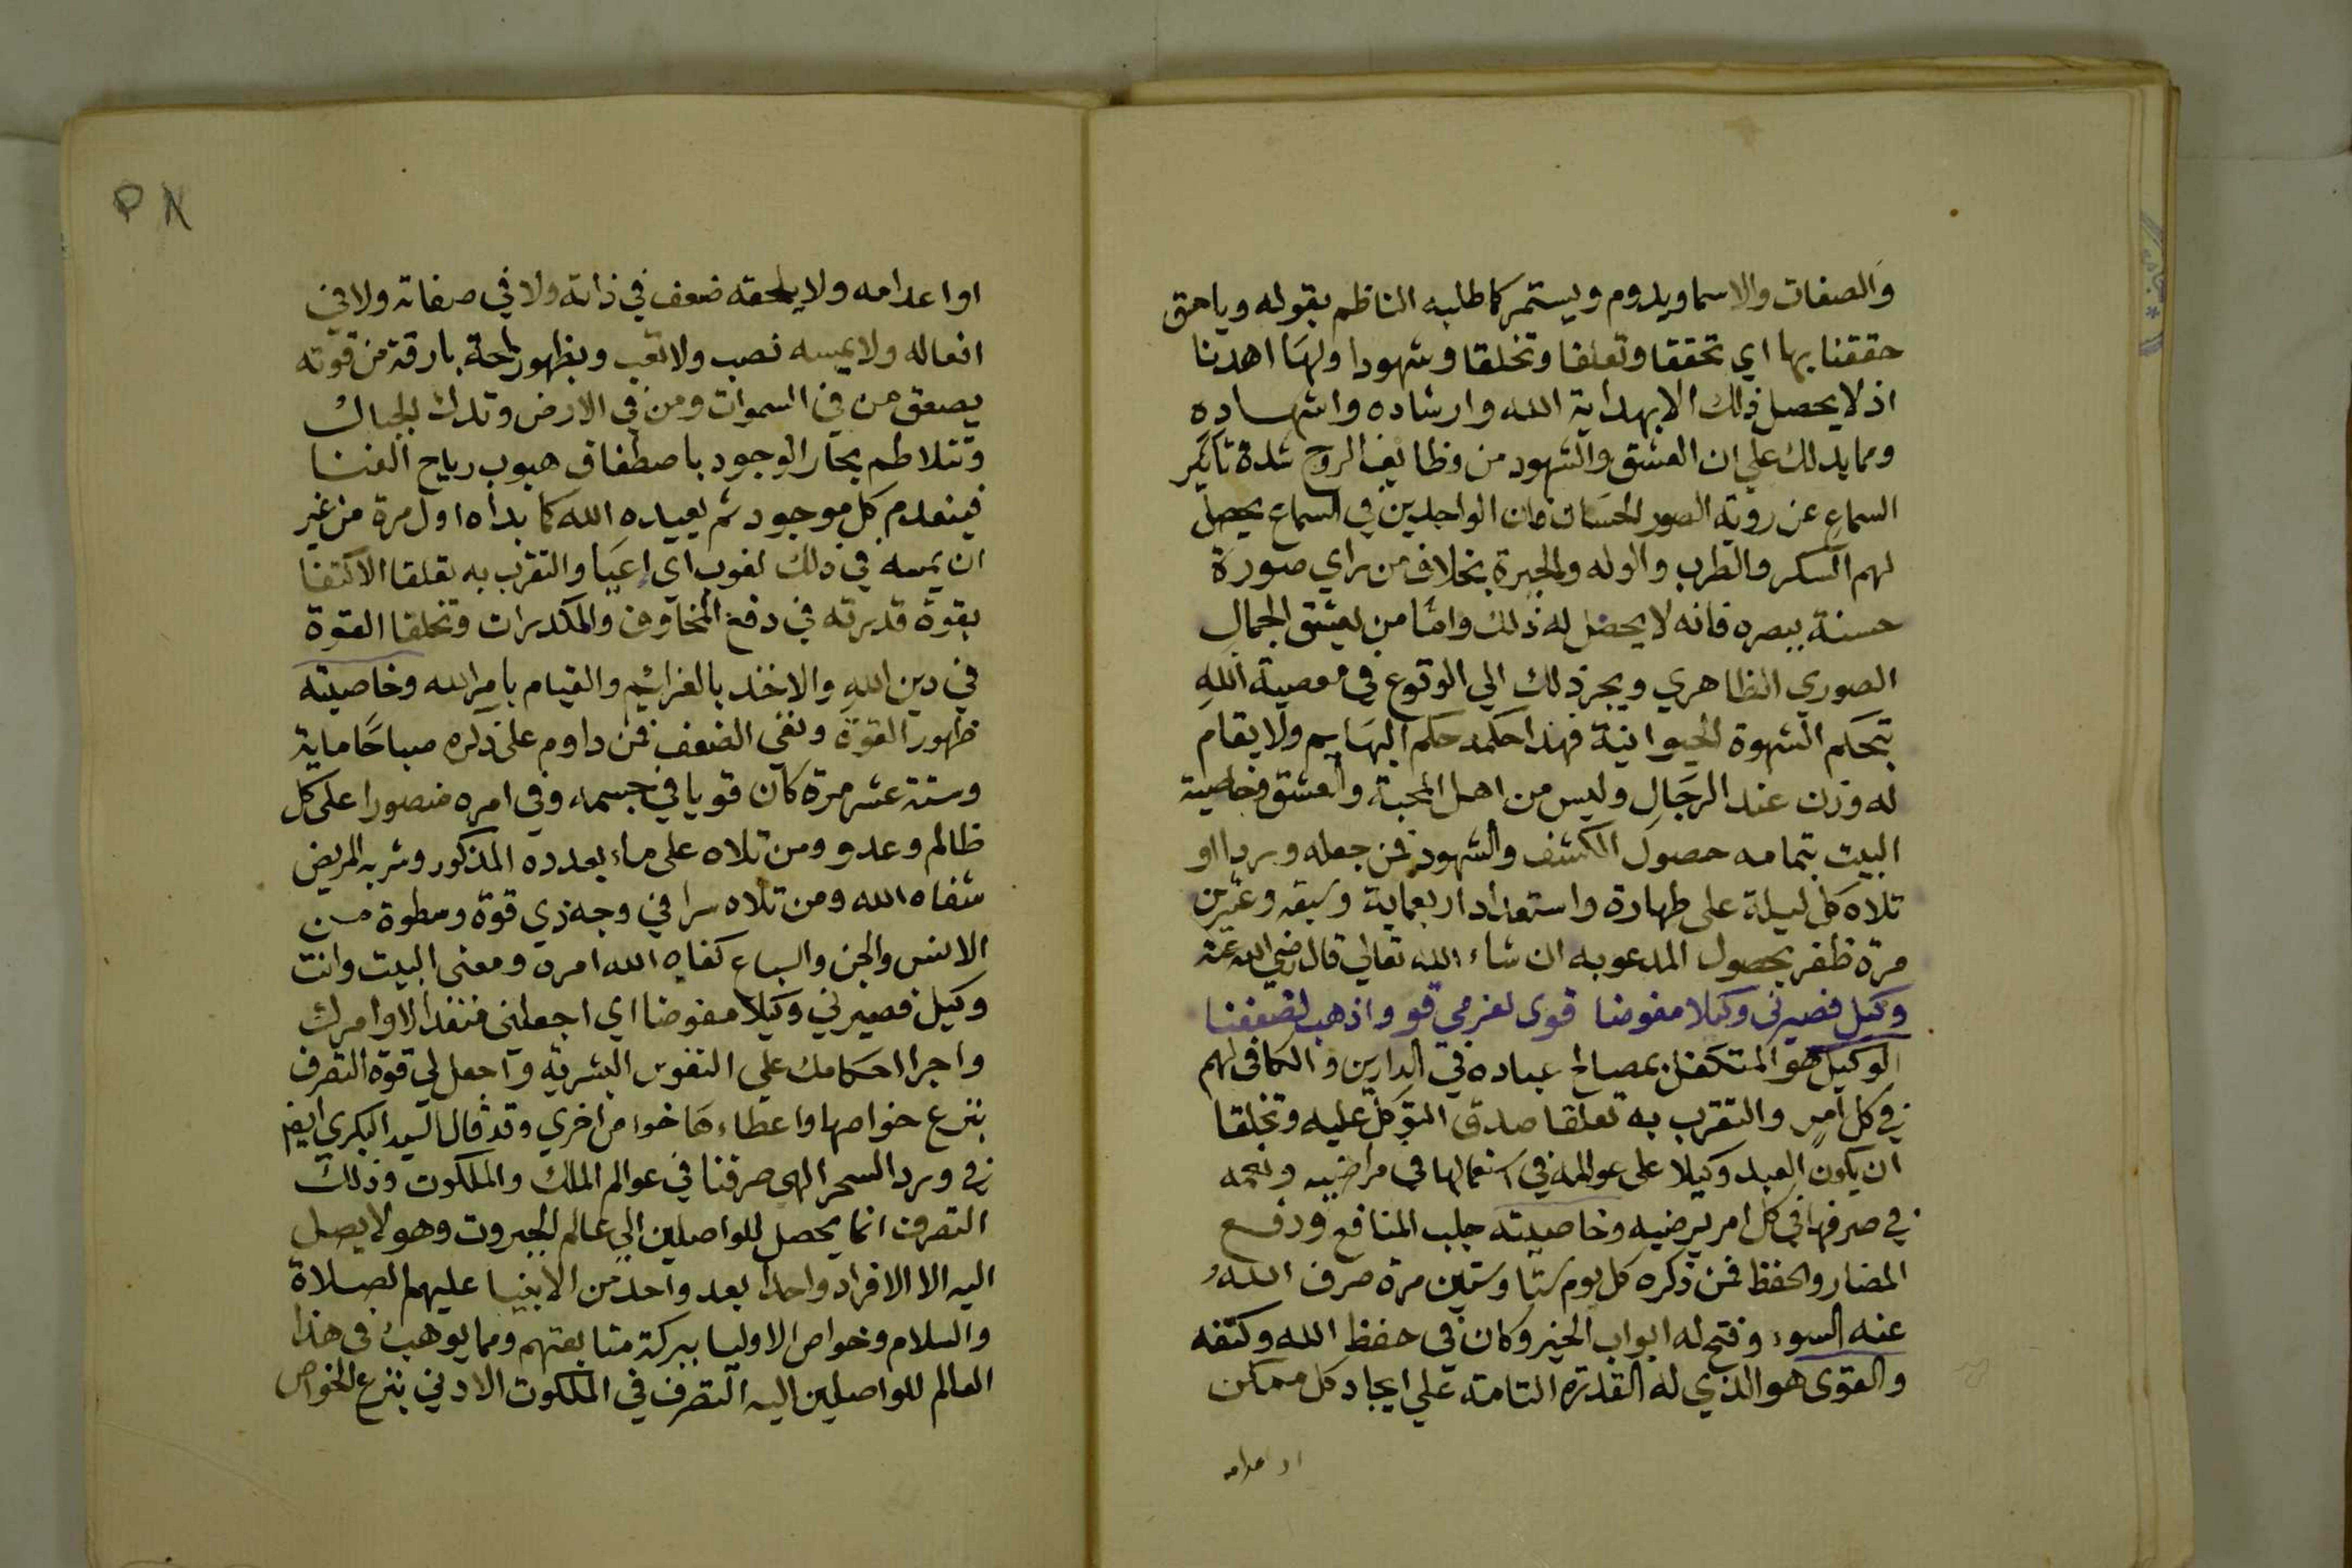 والصفات والاسما ويدوم ويستمر كما طلبه الناظم بقوله وياحق
حققنا بها اي تحققا وتعلقا وتخلقا وشهودا ولها اهدنا
اذ لا يحصل ذلك الا بهداية الله وارشاده واشهاده
ومما يدلك علي ان العشق والشهود من وظايف الروح شدة تاثير
السماع عن روية الصور الحسان فان الواجدين في السماع يحصل
لهم السكر والطرب والوله والحيرة بخلاف من راي صورة
حسنة ببصره فانه لا يحصل له ذلك واما من يعشق الجمال
الصوري الظاهري ويجر ذلك الي الوقوع في معصية الله
بتحكم الشهوة الحيوانية فهذا حكمه حكم البهايم ولا يقام
له وزن عند الرجال وليس من اهل المحبة والعشق وخاصية
البيت بتمامه حصول الكشف والشهود فمن جعله وردا او
تلاه كل ليلة على طهارة واستعداد اربعماية وسبعة وعشرين
مرة ظفر بحصول المدعو به ان شاء الله تعالي قال رضي الله عنه
وكيل فصيرني وكيلا مفوضا قوى لعزمي قو واذهب لضعفنا
الوكيل هو المتكفل بمصالح عباده في الدارين والكافي لهم
في كل امر والتقرب به تعلقا صدق التوكل عليه وتخلقا
ان يكون العبد وكيلا على عوالمه في استعمالها في مراضيه
في صرفها في كل امر يرضيه وخاصيته جلب المنافع ودفع
المضار والحفظ فمن ذكره كل يوم ستا وستين مرة صرف الله
عنه السوء وفتح له ابواب الخير وكان في حفظ الله وكنفه
والقوى هو الذي له القدرة التامة علي ايجاد كل ممكن
او اعدامه
او اعدامه ولا يلحقه ضعف في ذاته ولا في صفاته ولا في
افعاله ولا يمسه نصب ولا تعب وبظهور لمحة بارقة من قوته
يصعق من في السموات ومن في الارض وتدك الجبال
وتتلاطم بحار الوجود باصطفاق هبوب رياح الفنا
فينعدم كل موجود ثم يعيده الله كما بداه اول مرة من غير
ان يمسه في ذلك لغوب اي اعيا والتقرب به تعلقا الاكتفا
بقوة قدرته في دفع المخاوف والمكدرات وتخلقا القوة
في دين الله والاخذ بالعزائم والقيام بامر الله وخاصيته
ظهور القوة ونفي الضعف فمن داوم على ذكره صباحا ماية
وستة عشر مرة كان قويا في جسمه وفي امره منصورا على كل
ظالم وعدو ومن تلاه على ماء بعدده المذكور وشربه المريض
شفاه الله ومن تلاه سرا في وجه ذي قوة وسطوة من
الانس والجن والسباع كفاه الله امره ومعنى البيت وانت
وكيل فصيرني وكيلا مفوضا اي اجعلني منفذا لاوامرك
واجرا احكامك علي النفوس البشرية واجعل لي قوة التصرف
بنزع خواصها واعطاءها خواص اخري وقد قال السيد البكري ايضا
في ورد السحر الهي صرفنا في عوالم الملك والملكوت وذلك
التصرف انما يحصل للواصلين الي عالم الجبروت وهو لا يصل
اليه الا الافراد واحدا بعد واحد من الانبيا عليهم الصلاة
والسلام وخواص الاوليا ببركة متابعتهم ومما يوهب في هذا
العالم للواصلين اليه التصرف في الملكوت الادني بنزع الخواص